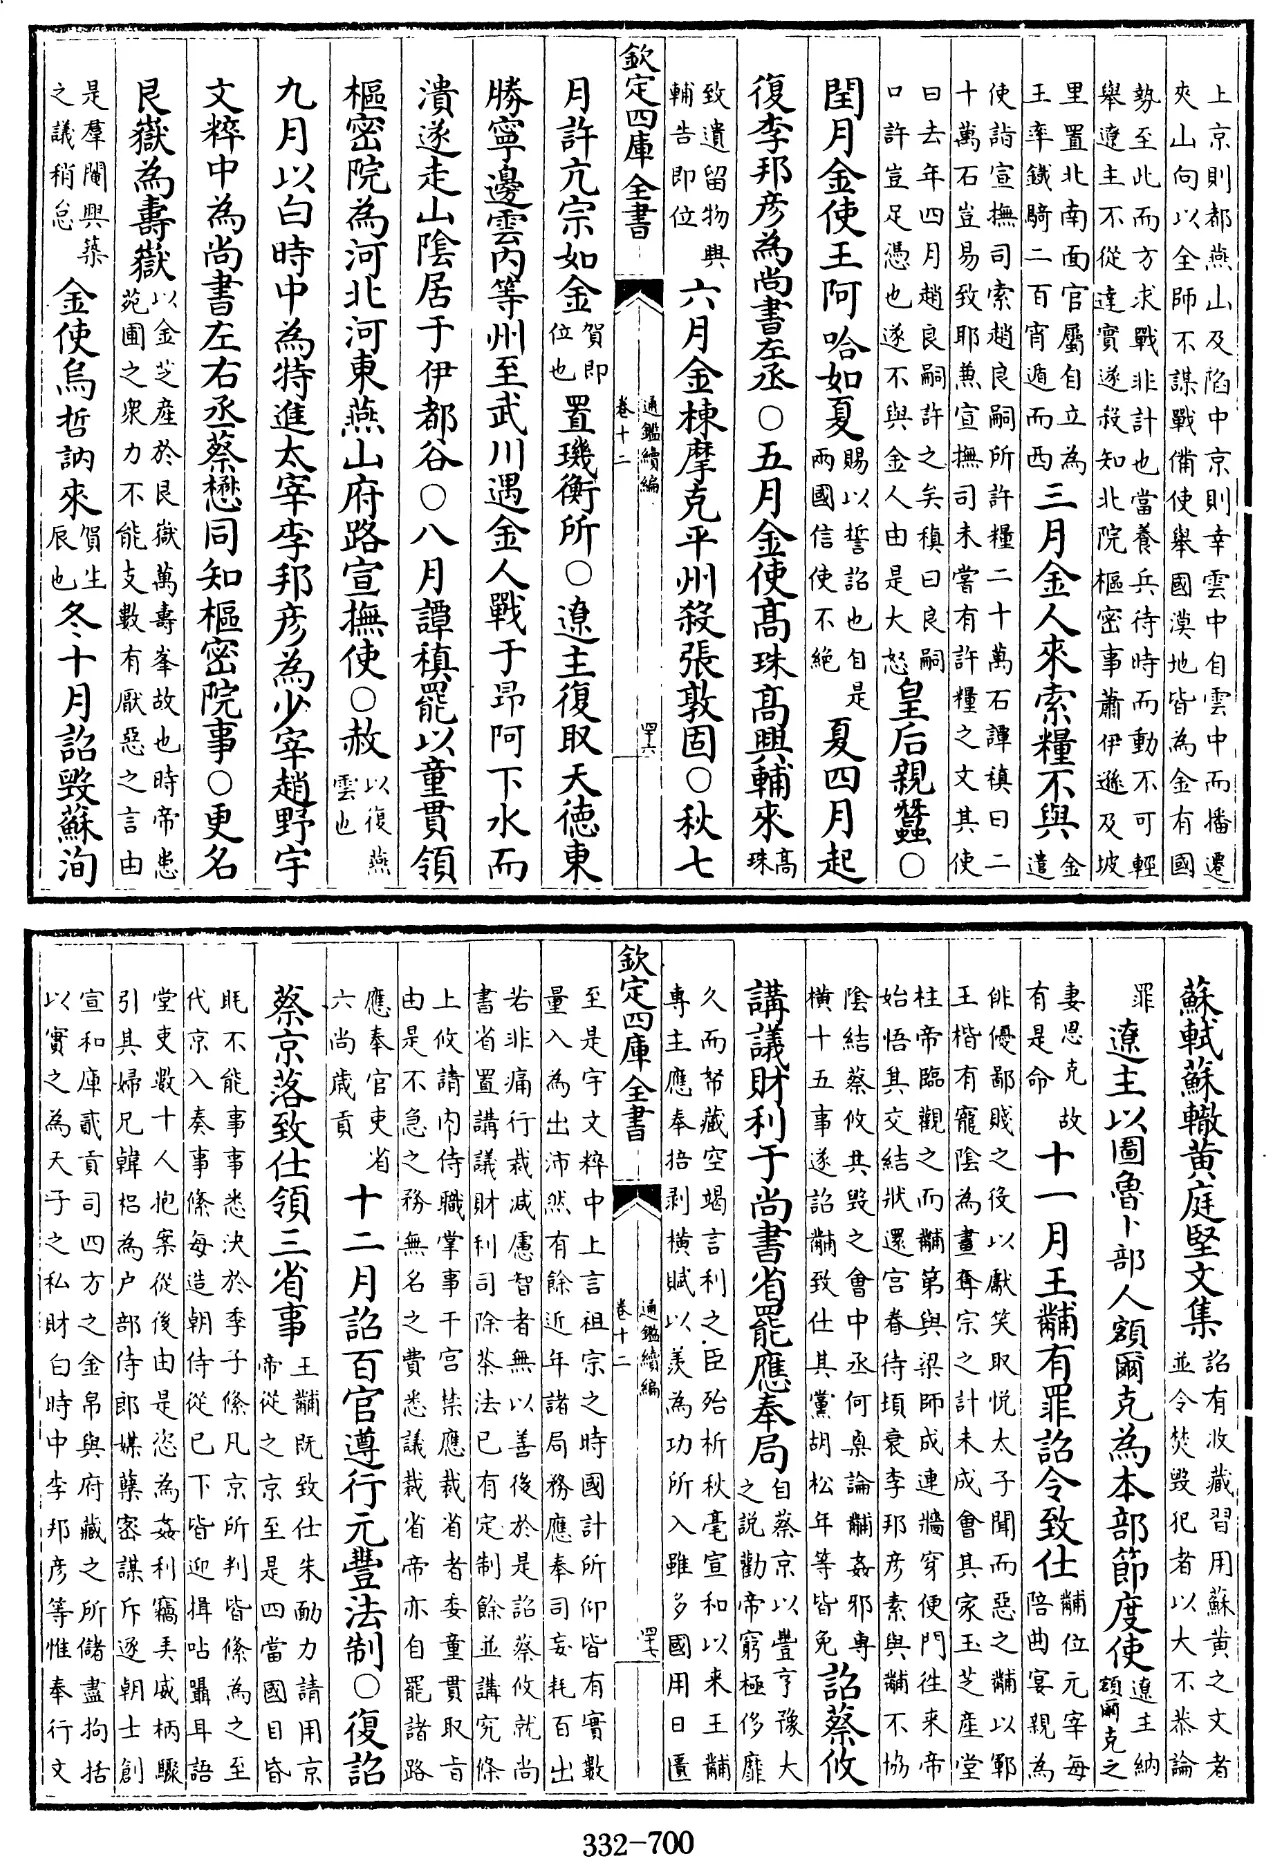 上京則都燕山及陷中京則幸雲中自雲中而播遷
夾山向以全師不謀戰備使舉國漢地皆為金有國
勢至此而方求戰非計也當養兵待時而動不可輕
舉遼主不從達實遂殺知北院樞密事蕭伊遜及坡
里置北南面官屬自立為
王率鐵騎二百宵遁而西三月金人來索糧不與金
遣
使詣宣撫司索趙良嗣所許糧二十萬石譚稹曰二
十萬石豈易致耶兼宣撫司未嘗有許糧之文其使
曰去年四月趙良嗣許之矣稹曰良嗣
口許豈足憑也遂不與金人由是大怒皇后親蠶○
閏月金使王阿哈如夏賜以誓詔也自是
兩國信使不絶夏四月起
復李邦彦為尚書左丞○五月金使高珠高興輔來高
珠
致遺留物興
輔告即位六月金棟摩克平州殺張敦固○秋七
欽定四庫全書
通鑑續編
卷十二
四十六
月許亢宗如金賀即
位也置璣衡所○遼主復取天德東
勝寧邊雲內等州至武川遇金人戰于昂阿下水而
潰遂走山陰居于伊都谷○八月譚稹罷以童貫領
樞密院為河北河東燕山府路宣撫使○赦以復燕
雲也
九月以白時中為特進太宰李邦彦為少宰趙野宇
文粹中為尚書左右丞蔡懋同知樞密院事○更名
艮嶽為壽嶽以金芝産於艮嶽萬壽峯故也時帝患
苑囿之衆力不能支數有厭惡之言由
是羣閹興築
之議稍怠金使烏哲訥來賀生
辰也冬十月詔毁蘇洵
蘇軾蘇轍黄庭堅文集詔有收藏習用蘇黄之文者
並令焚毁犯者以大不恭論
罪遼主以圖魯卜部人額爾克為本部節度使遼主納
額爾克之
妻思克故
有是命十一月王黼有罪詔令致仕黼位元宰每
陪曲宴親為
俳優鄙賤之役以獻笑取悦太子聞而惡之黼以鄆
王楷有寵陰為畫奪宗之計未成會其家玉芝産堂
柱帝臨觀之而黼第與梁師成連牆穿便門往來帝
始悟其交結狀還宮眷待頃衰李邦彦素與黼不協
陰結蔡攸共毁之會中丞何㮚論黼姦邪專
横十五事遂詔黼致仕其黨胡松年等皆免詔蔡攸
講議財利于尚書省罷應奉局自蔡京以豐亨豫大
之說勸帝窮極侈靡
久而帑藏空竭言利之臣殆析秋毫宣和以来王黼
專主應奉掊剥横賦以羨為功所入雖多國用日匱
欽定四庫全書
通鑑續編
卷十二
四十七
至是宇文粹中上言祖宗之時國計所仰皆有實數
量入為出沛然有餘近年諸局務應奉司妄耗百出
若非痛行裁减慮智者無以善後於是詔蔡攸就尚
書省置講議財利司除茶法已有定制餘並講究條
上攸請内侍職掌事干宮禁應裁省者委童貫取旨
由是不急之務無名之費悉議裁省帝亦自罷諸路
應奉官吏省
六尚歲貢十二月詔百官遵行元豐法制○復詔
蔡京落致仕領三省事王黼既致仕朱勔力請用京
帝從之京至是四當國目昏
眊不能事事悉決於季子絛凡京所判皆絛為之至
代京入奏事絛每造朝侍從已下皆迎揖呫囁耳語
堂吏數十人抱案從後由是恣為姦利竊弄威柄驟
引其婦兄韓梠為户部侍郎媒糱密謀斥逐朝士創
宣和庫貳貢司四方之金帛與府藏之所儲盡拘括
以實之為天子之私財白時中李邦彦等惟奉行文
332-700